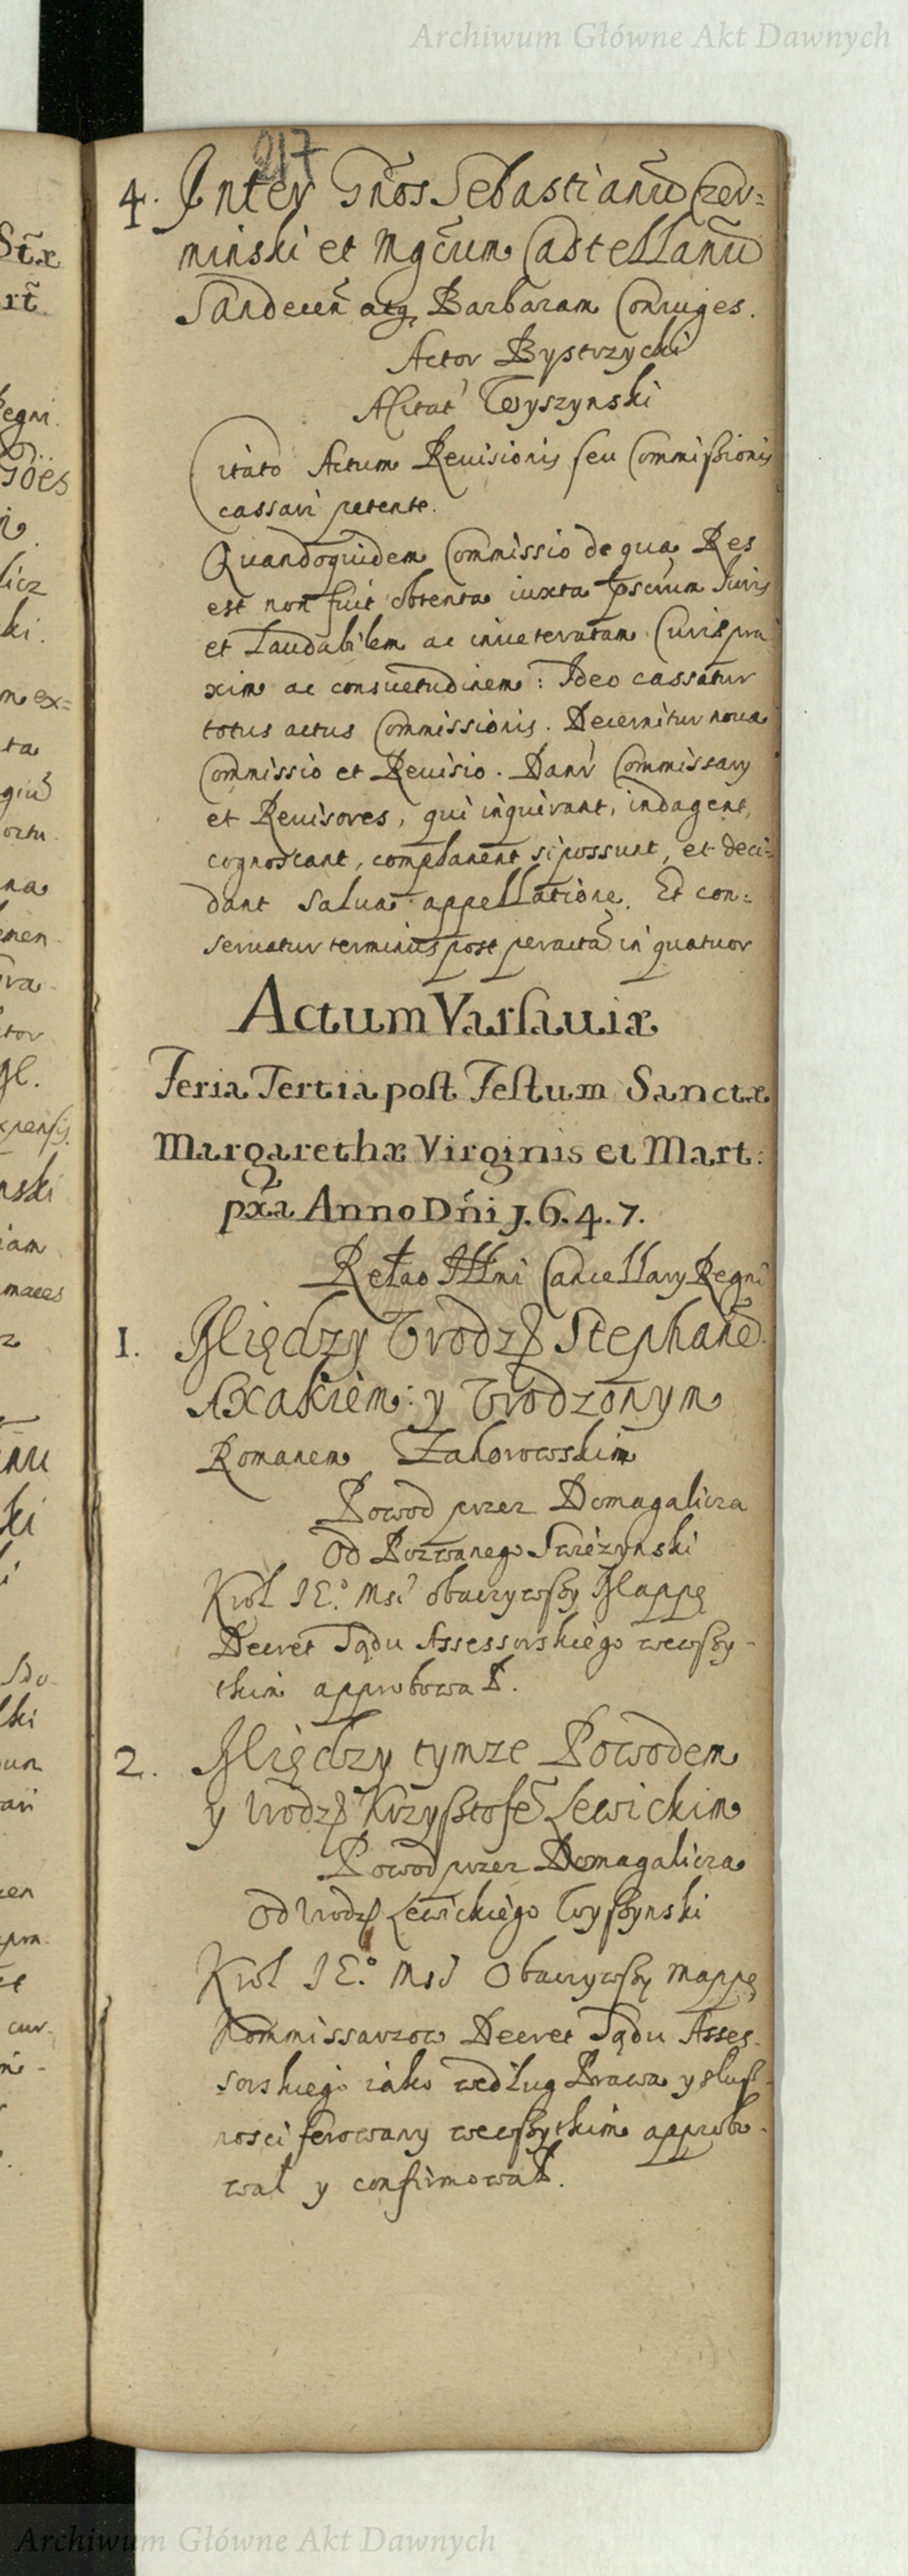 Archiwum Główne Akt Dawnych
217
4. Inter Gños Sebastianũ Czer=
minski et Mgcũm Castellanũ
Sandecen̄ atq̨ Barbaram Coniuges.
Actor Bystrzycki
Citat' Wyszynski
Citato Actum Reuisionis seu Commißionis
cassari petente.
Quandoquidem Commissio de qua Res
est non fuit obtenta iuxta Iuris
et Laudabilem ac inueteratam Curis pra
xim ac consuetudinem: Ideo cassatur
totus actus Commissionis. Decernitur noua
Commissio et Reuisio. Danť Commissary
et Reuisores, qui inquirant, indagent,
cognoscant, complanent si possunt, et deci=
dant salua appellatione. Et con=
seruatur terminus post peractã in quatuor
Actum Varsauiæ
Feria Tertia post Festum Sanctæ
Margarethæ Virginis et Mart:
pxã Anno Dñi 1.6.4.7.
Relao Illmi Cancellary Regni
1. Między Vrodz Stephanē
Axakiem: y Vrodzonym
Romanem Zahorowskim
Powod przez Domagalicza
Od Pozwanego Swiezynski
Krol IE.° Msć obaczywszy Mappę
Decret Sądu Assessorskiego wewszy-
tkim approbował.
2. Między tymze Powodem
y Vrodz Krzysztofē Lewickim
Powod przez Domagalicza
Od Vrodz Lewickiego Wyszynski
Krol IE.° Msć Obaczywszy mappę
Kommissarzow Decret Sądu Asses-
sorskiego iako według Prawa y słusz-
nosci ferowany wewszytkim approbo-
wał y confirmował.
Archiwum Główne Akt Dawnych